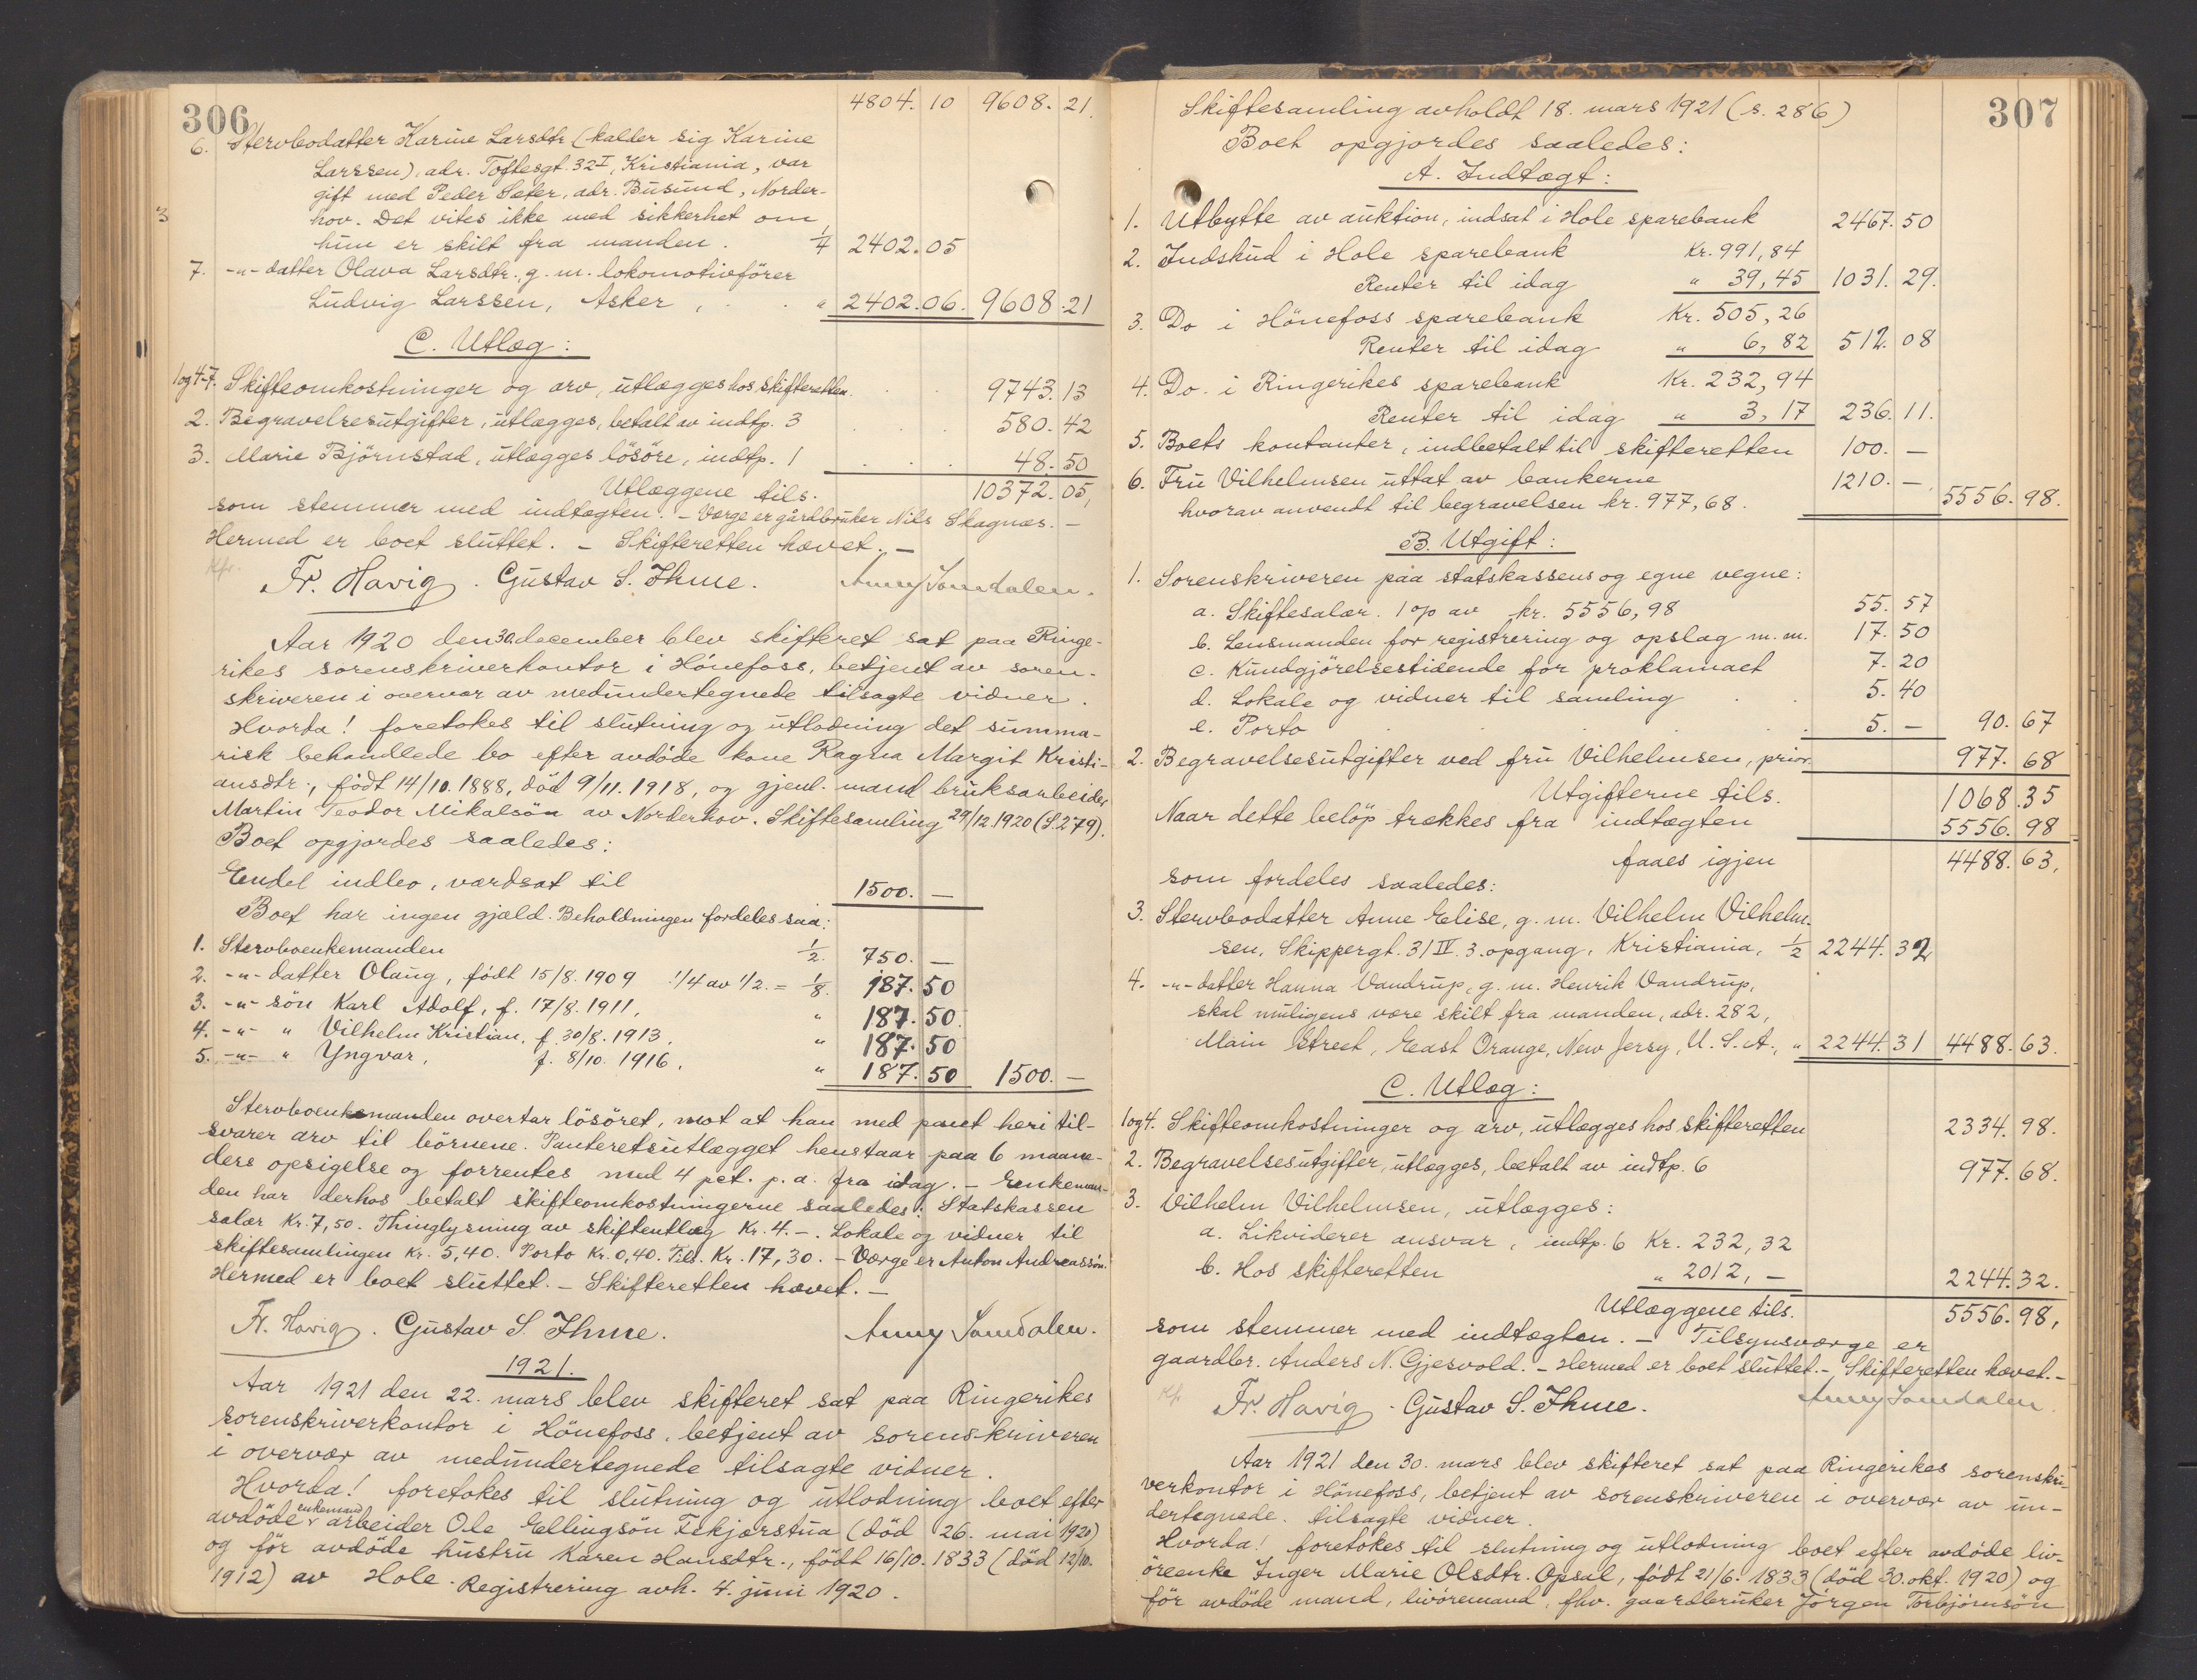 306
4804. 10 9608. 21.
6. Stervbodatter Karine Larsdtr (kalder sig Karine
Larssen), adr. Toftesgt. 32 I, Kristiania, var
gift med Peder Sæter, adr. Busund, Norder-
hov. Det vites ikke med sikkerhet om
hun er skilt fra manden. 1/4 2402. 05
7. -"- datter Olava Larsdtr., g. m. lokomotivfører
Ludvig Larssen, Asker, " 2402. 06. 9608. 21
C. Utlæg:
1 og 4-7. Skifteomkostninger og arv, utlægges hos skifteretten 9743. 13
2. Begravelsesutgifter, utlægges, betalt av indtp. 3 580. 42
3. Marie Björnstad, utlægges lösöre, indtp. 1 48. 50
Utlæggene tils. 10372. 05,
som stemmer med indtægten. - Værge er gårdbruker Nils Skagnæs. -
Hermed er boet sluttet. - Skifteretten hævet. -
Kfr.
Fr. Havig. Gustav S. Ihme. Anny Samdalen.
Aar 1920 den 30. december blev skifteret sat paa Ringe-
rikes sorenskriverkontor i Hönefoss, betjent av soren-
skriveren i overvær av medundertegnede tilsagte vidner.
Hvorda! foretokes til slutning og utlodning det summa-
risk behandlede bo efter avdöde kone Ragna Margit Kristi-
ansdtr., födt 14/10. 1888, död 9/11. 1918, og gjenl. mand bruksarbeider
Martin Teodor Mikalsön av Norderhov. Skiftesamling 29/12 1920 (S. 279).
Boet opgjordes saaledes:
Endel indbo, værdsat til 1500. -
Boet har ingen gjæld. Beholdningen fordeles saa:
1. Stervboenkemanden 1/2. 750. -
2. -"- datter Olaug, födt 15/8. 1909 1/4 av 1/2. = 1/8. 187. 50
3. -"- sön Karl Adolf, f. 17/8. 1911, " 187. 50.
4. -"- " Vilhelm Kristian, f. 30/8. 1913, " 187. 50
5. -"- " Yngvar, f. 8/10. 1916, " 187. 50 1500. -
Stervboenkemanden overtar lösöret, mot at han med pant heri til-
svarer arv til börnene. Panteretsutlægget henstaar paa 6 maane-
ders opsigelse og forrentes med 4 pct. p. a. fra idag. - Enkeman-
den har derhos betalt skifteomkostningerne saaledes: Statskassen
salær Kr. 7,50. Thinglysning av skifteutlæg Kr. 4.-. Lokale og vidner til
skiftesamlingen Kr. 5,40. Porto Kr. 0,40. Tils. Kr. 17,30. - Værge er Anton Andreassön.
Hermed er boet sluttet. - Skifteretten hævet. -
Fr. Havig. Gustav S. Ihme. Anny Samdalen.
1921.
Aar 1921 den 22. mars blev skifteret sat paa Ringerikes
sorenskriverkontor i Hönefoss, betjent av sorenskriveren
i overvær av medundertegnede tilsagte vidner.
Hvorda! foretokes til slutning og utlodning boet efter
avdöde enkemand arbeider Ole Ellingsön Fekjærstua (död 26. mai 1920)
og för avdöde hustru Karen Hansdtr., födt 16/10. 1833 (död 12/10.
1912) av Hole. Registrering avh. 4. juni 1920.
307
Skiftesamling avholdt 18. mars 1921 (s. 286)
Boet opgjordes saaledes:
A. Indtægt:
1. Utbytte av auktion, indsat i Hole sparebank 2467. 50
2. Indskud i Hole sparebank Kr. 991,84
Renter til idag " 39,45 1031. 29.
3. Do i Hönefoss sparebank Kr. 505,26
Renter til idag " 6,82 512. 08
4. Do. i Ringerikes sparebank Kr. 232,94
Renter til idag " 3,17 236. 11.
5. Boets kontanter, indbetalt til skifteretten 100. -
6. Fru Vilhelmsen uttat av bankerne 1210. -
hvorav anvendt til begravelsen kr. 977,68. 5556. 98.
B. Utgift:
1. Sorenskriveren paa statskassens og egne vegne:
a. Skiftesalær. 1 o/o av kr. 5556,98 55. 57
b. Lensmanden for registrering og opslag m. m. 17. 50
c. Kundgjörelsestidende for proklamaet 7. 20
d. Lokale og vidner til samling 5. 40
e. Porto 5. - 90. 67
2. Begravelsesutgifter ved fru Vilhelmsen, prior. 977. 68
Utgifterne tils. 1068. 35
Naar dette belöp trækkes fra indtægten 5556. 98
faaes igjen 4488. 63,
som fordeles saaledes:
3. Stervbodatter Anne Elise, g. m. Vilhelm Vilhelm-
sen, Skippergt. 31 IV. 3. opgang, Kristiania, 1/2 2244. 32
4. -"- datter Hanna Vandrup, g. m. Henrik Vandrup,
skal muligens være skilt fra manden, adr. 282,
Main Street, East Orange, New Jersy, U. S. A., " 2244. 31 4488. 63.
C. Utlæg:
1 og 4. Skifteomkostninger og arv, utlægges hos skifteretten 2334. 98.
2. Begravelsesutgifter, utlægges, betalt av indtp. 6 977. 68.
3. Vilhelm Vilhelmsen, utlægges:
a. Likviderer ansvar, indtp. 6 Kr. 232,32
b. Hos skifteretten " 2012,- 2244. 32.
Utlæggene tils. 5556. 98,
som stemmer med indtægten. - Tilsynsværge er
gaardbr. Anders N. Gjesvold. - Hermed er boet sluttet. - Skifteretten hævet. -
Kfr.
Fr. Havig. Gustav S. Ihme. Anny Samdalen.
Aar 1921 den 30. mars blev skifteret sat paa Ringerikes sorenskri-
verkontor i Hönefoss, betjent av sorenskriveren i overvær av un-
dertegnede tilsagte vidner.
Hvorda! foretokes til slutning og utlodning boet efter avdöde liv-
öreenke Inger Marie Olsdtr. Opsal, födt 21/6. 1833 (död 30. okt. 1920) og
för avdöde mand, livöremand, fhv. gaardbruker Jörgen Torbjörnsön